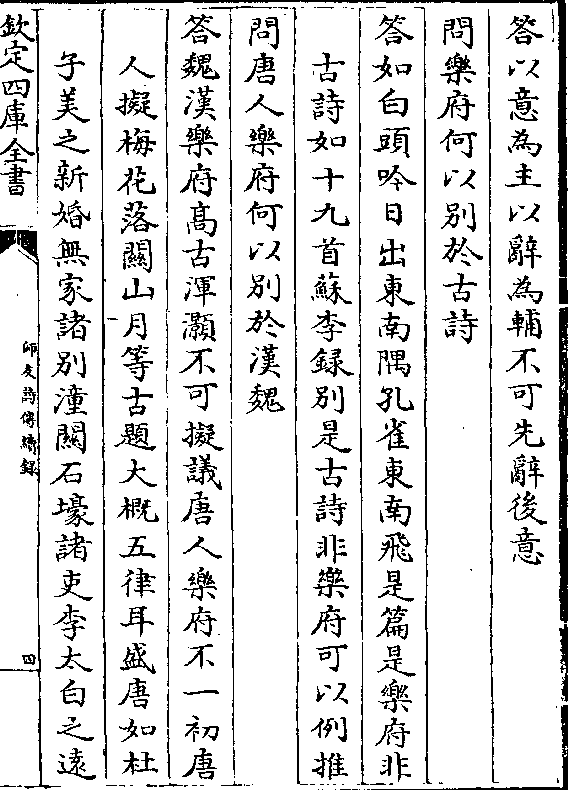 答以意為主以辭為輔不可先辭後意
問樂府何以别於古詩
答如白頭吟日出東南隅孔雀東南飛是篇是樂府非
古詩如十九首蘇李録别是古詩非樂府可以例推
問唐人樂府何以别於漢魏
答魏漢樂府髙古渾灝不可擬議唐人樂府不一初唐
人擬梅花落關山月等古題大概五律耳盛唐如杜
子美之新婚無家諸别潼關石壕諸吏李太白之遠
欽定四庫全書
師友詩傳續録
四